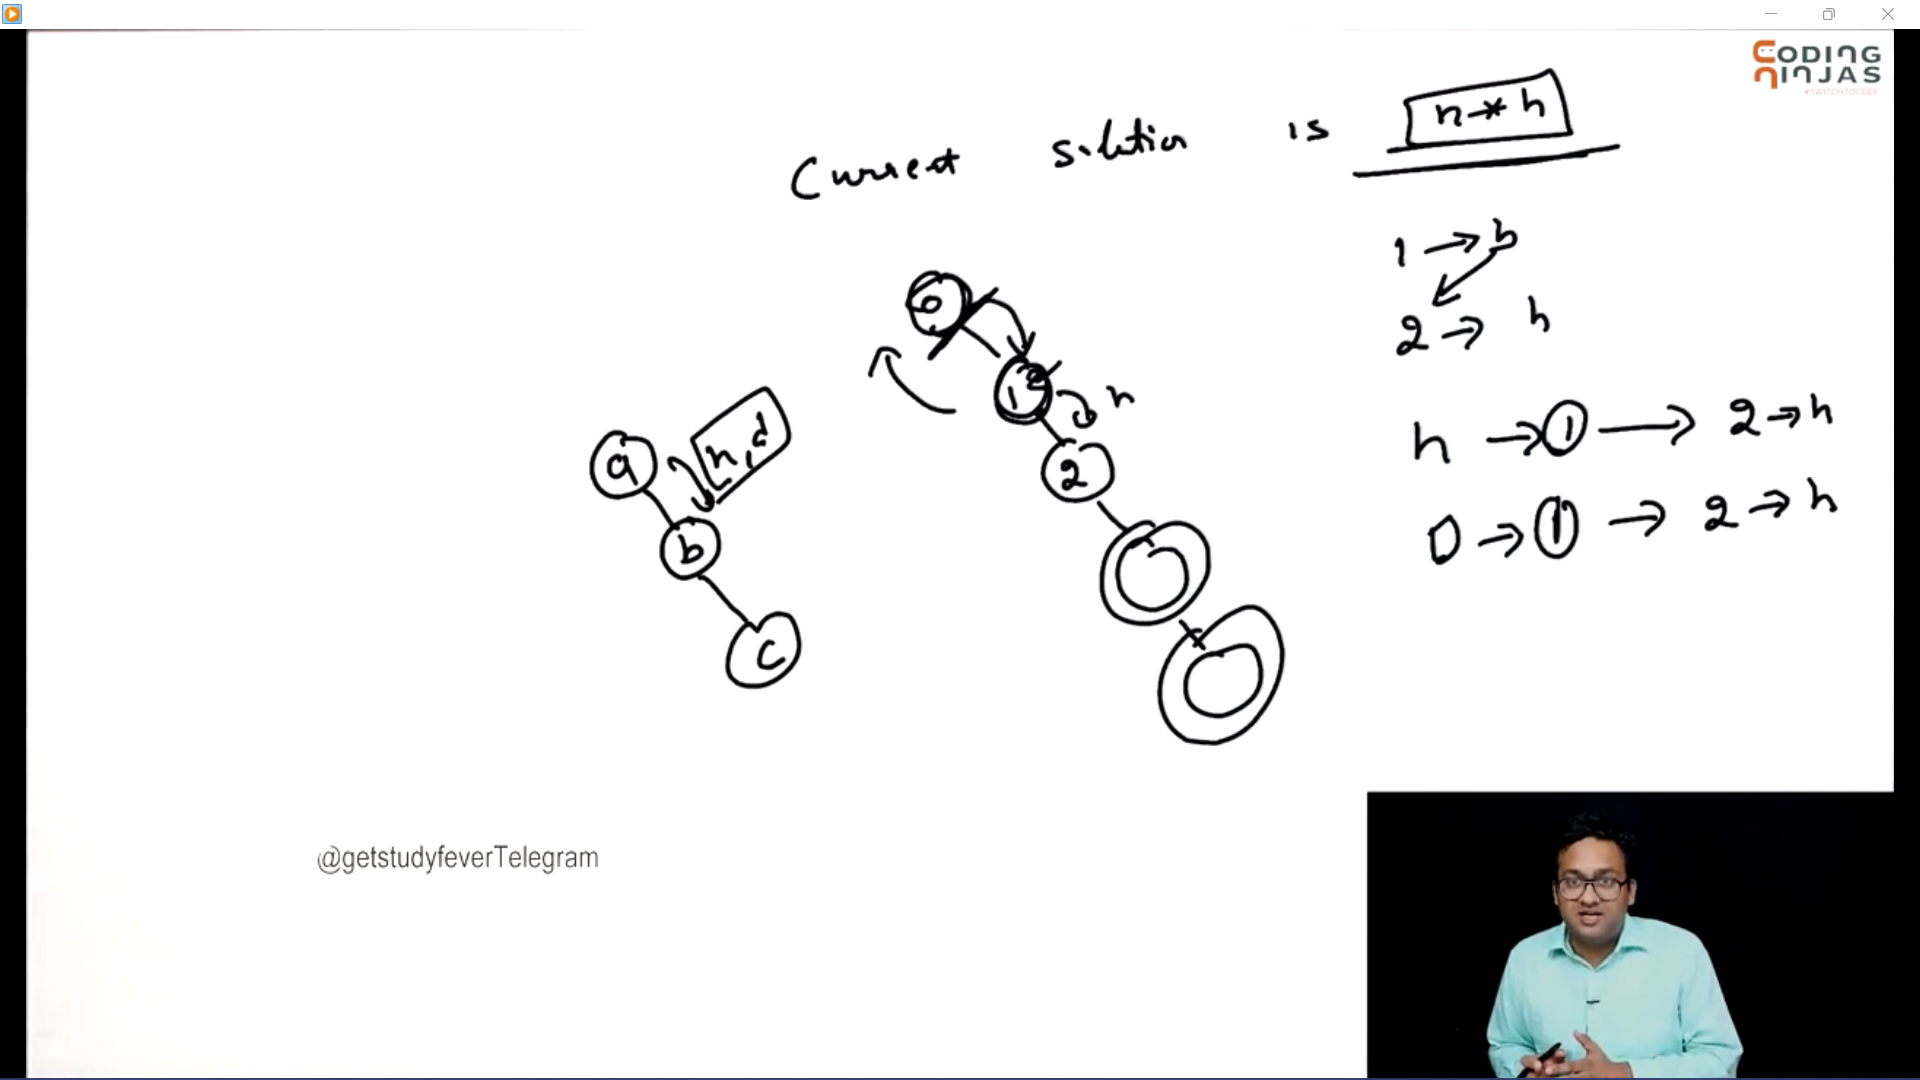 CODING
NINJAS
#SWITCHTOCODE
Current solution is n * h
1 → h
2 → h
h → 1 → 2 → h
0 → 1 → 2 → h
0
1 2
h
2
a
h, d
b
c
@getstudyfeverTelegram